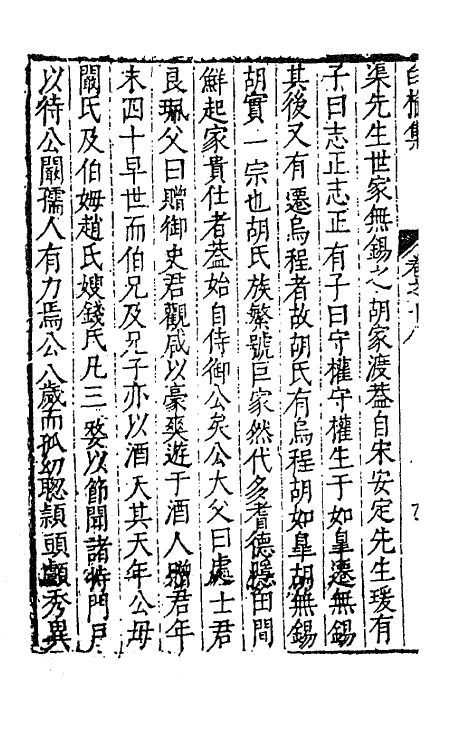 渠先生世家無錫之胡家渡葢自宋安定先生瑗有
子曰志正志正有子曰守權守權生于如臯遷無錫
其後又有遷烏程者故胡氏有烏程胡如臯胡無錫
胡實一宗也胡氏族繁號巨家然代多耆德隱田間
鮮起家貴仕者葢始自侍御公矣公大父曰處士君
良珮父曰贈御史君觀咸以豪爽遊于酒人贈君年
未四十早世而伯兄及兄子亦以酒夭其天年公母
闞氏及伯姆趙氏嫂錢氏凡三嫠以節聞諸將門戶
以待公闞孺人有力焉公八歲而孤幼聰頴頭顱秀異